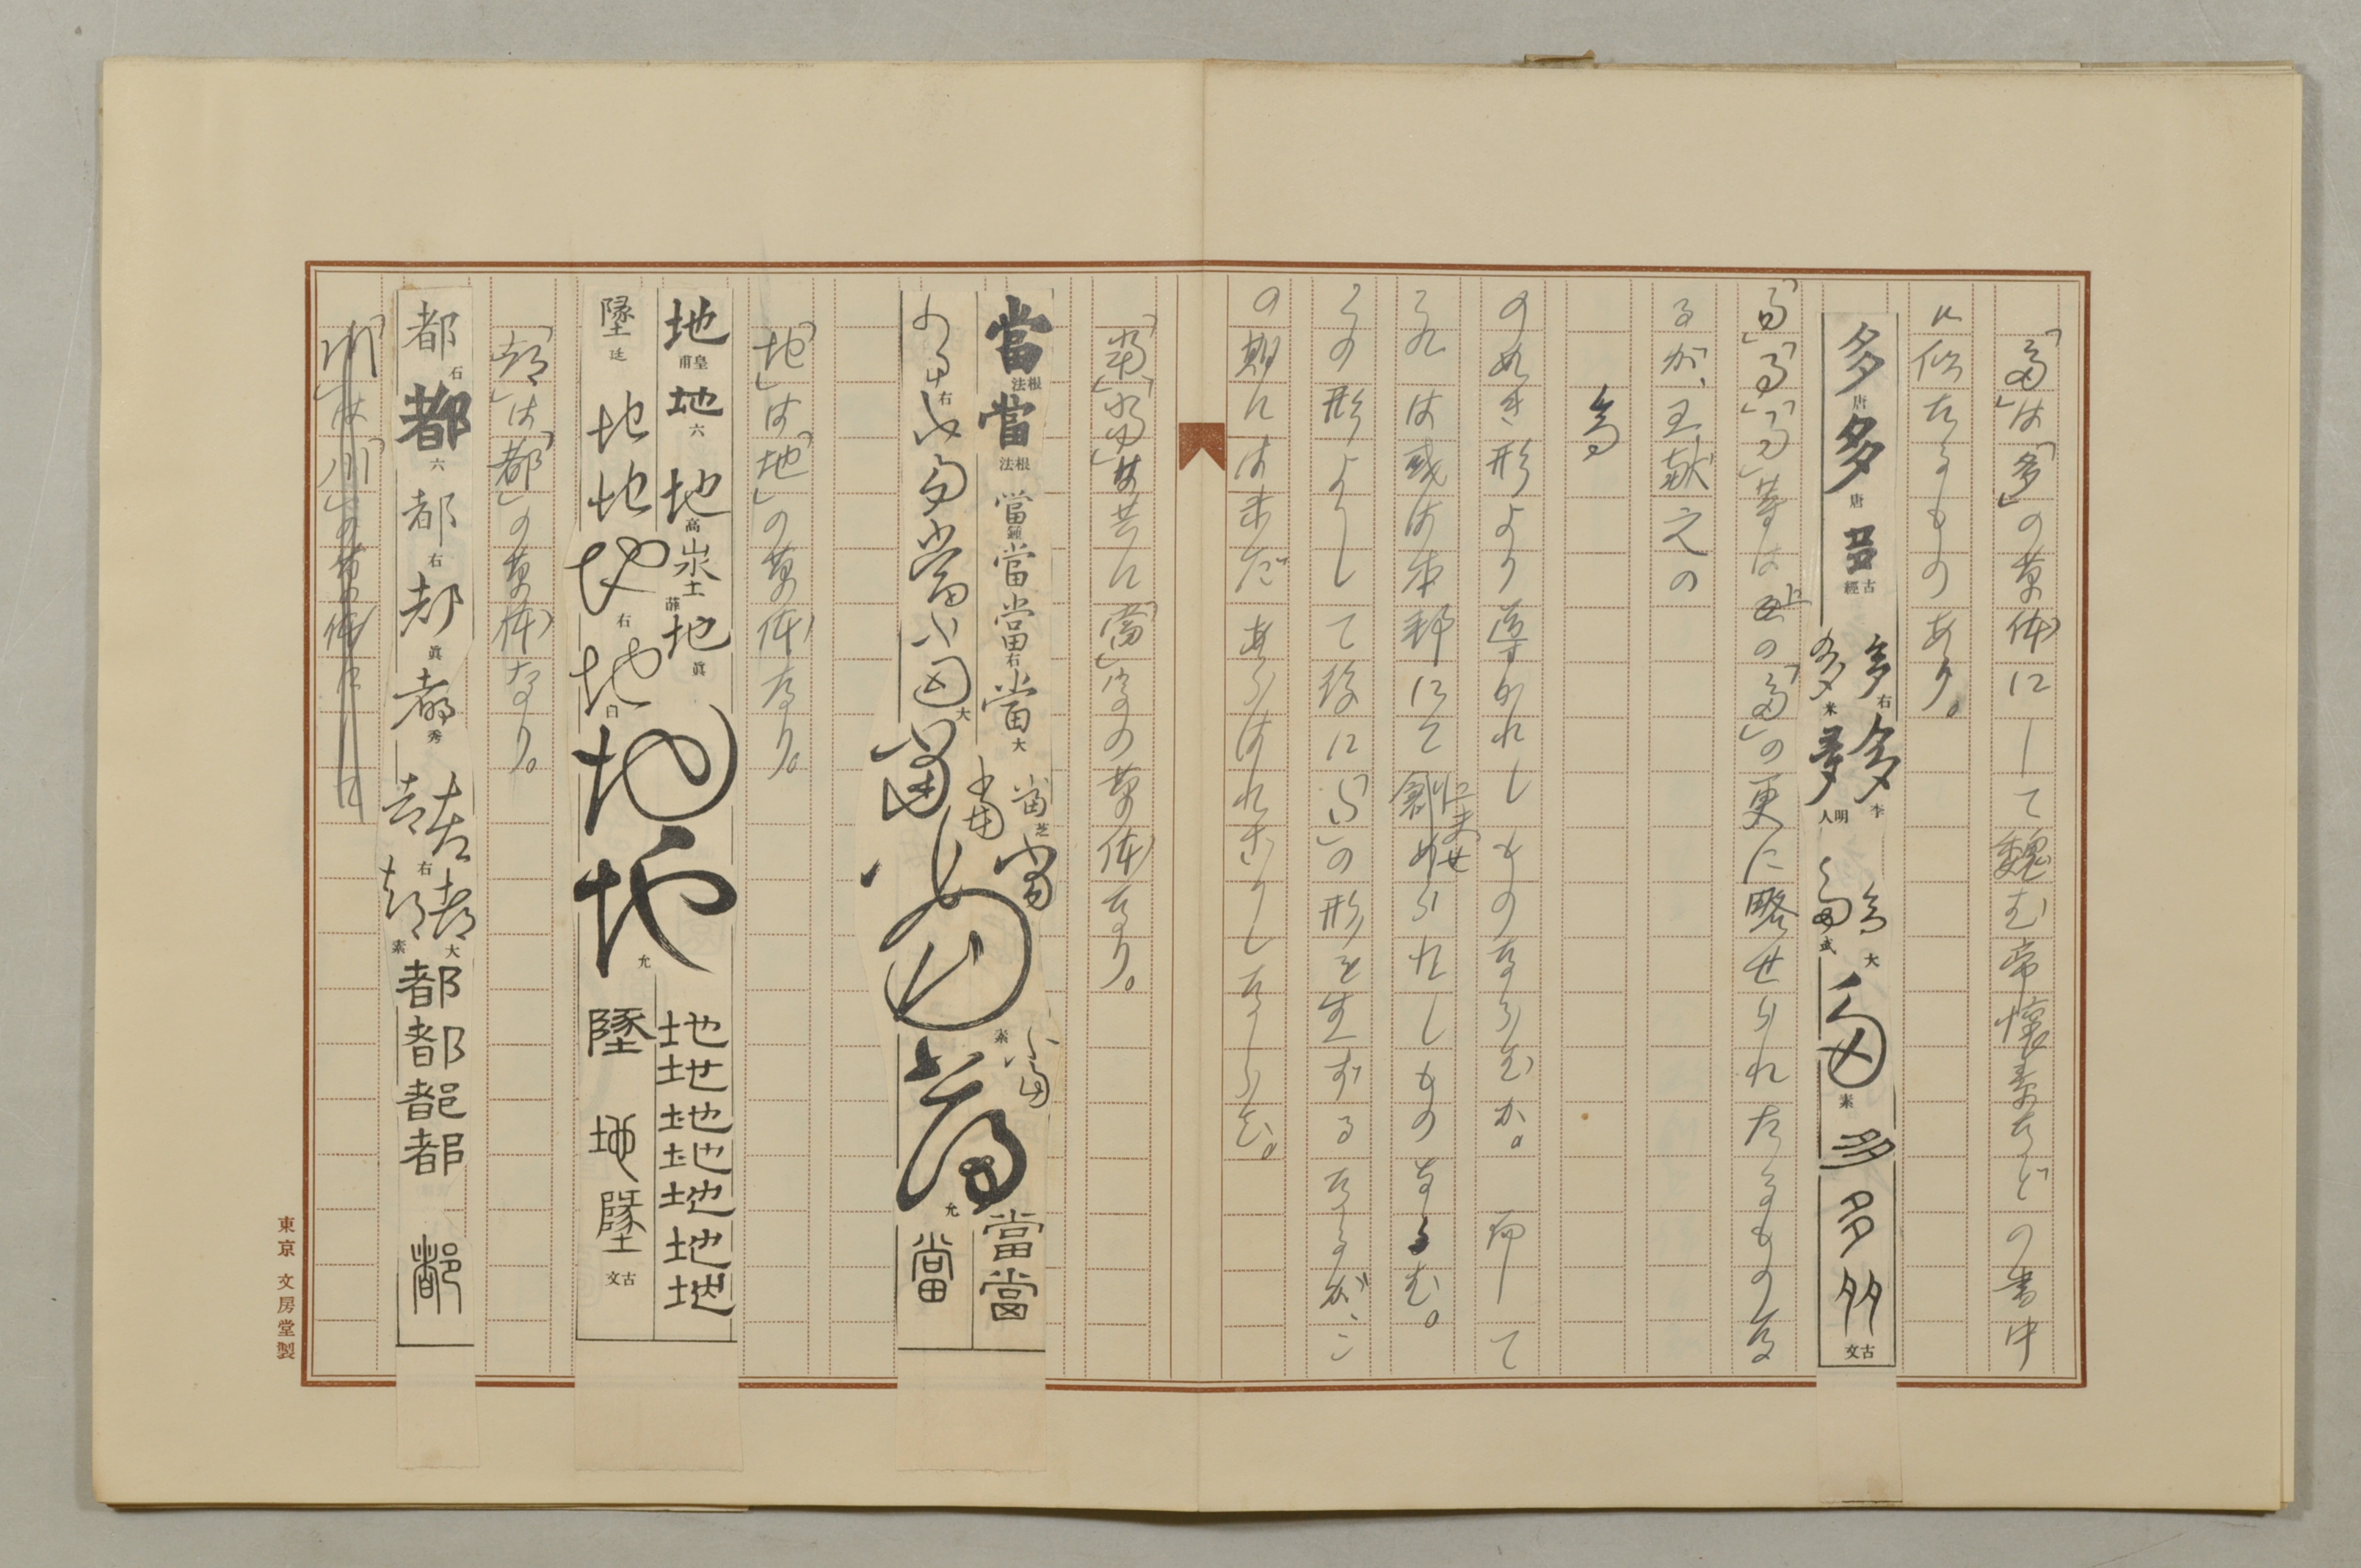 「多」は「多」の草体にして魏武帝懐素などの書中
に似たるものあり。
多唐多唐多古經
多右多李多大
多米多明人多武多素多多多古文
等は此の「多」の更に略せられたるものな
るが、王献之の
多
の如き形より導かれしものならむか。而して
これは或は本邦にて創められしものなるむ。
この形よりして後に「 」の形を生ずるなるが、こ
の期には未だあらはれざりしならむ。
「當」「當」は共に「當」字の草体なり。
當根法當根法當鍾當當右當大當芝當當
右當當當大當當素當允當當當
「地」は「地」の草体なり。
地皇甫地六地高埊薛地眞
墬廷地地地右地白地地允地地地地地地地
墬地墬古文
「都」は「都」の草体なり。
都石都六都右都眞都秀都右都大都素都都都都都
「川」は「川」の草体に
東京 文房堂製